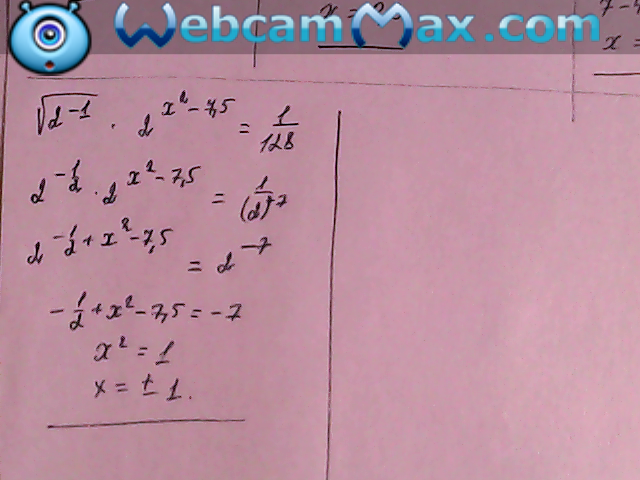 WebcamMax.com
x =
7 - 4
x =
√2⁻¹ · 2^(x² - 7,5) = 1/128
2^(-1/2) · 2^(x² - 7,5) = 1/(2)⁺⁷
2^(-1/2 + x² - 7,5) = 2⁻⁷
-1/2 + x² - 7,5 = -7
x² = 1
x = ± 1.